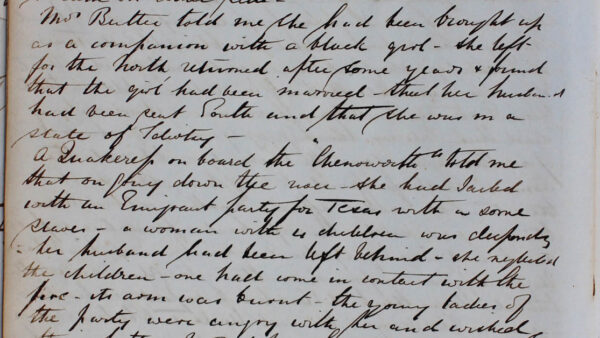 Mrs Butler told me she had been brought up
as a companion with a black girl - she left
for the North returned after some years & found
that the girl had been married - that her husband
had been sent South and that she was in a
state of Idiotcy -
A Quakeress on board the "Chenoworth" told me
that on going down the river - she had sailed
with an Emigrant party for Texas with some
slaves - a woman with children was desponding
- her husband had been left behind - she neglected
the children - one had come in contact with the
fire - its arm was burnt - the young ladies of
the party were angry with her and wished